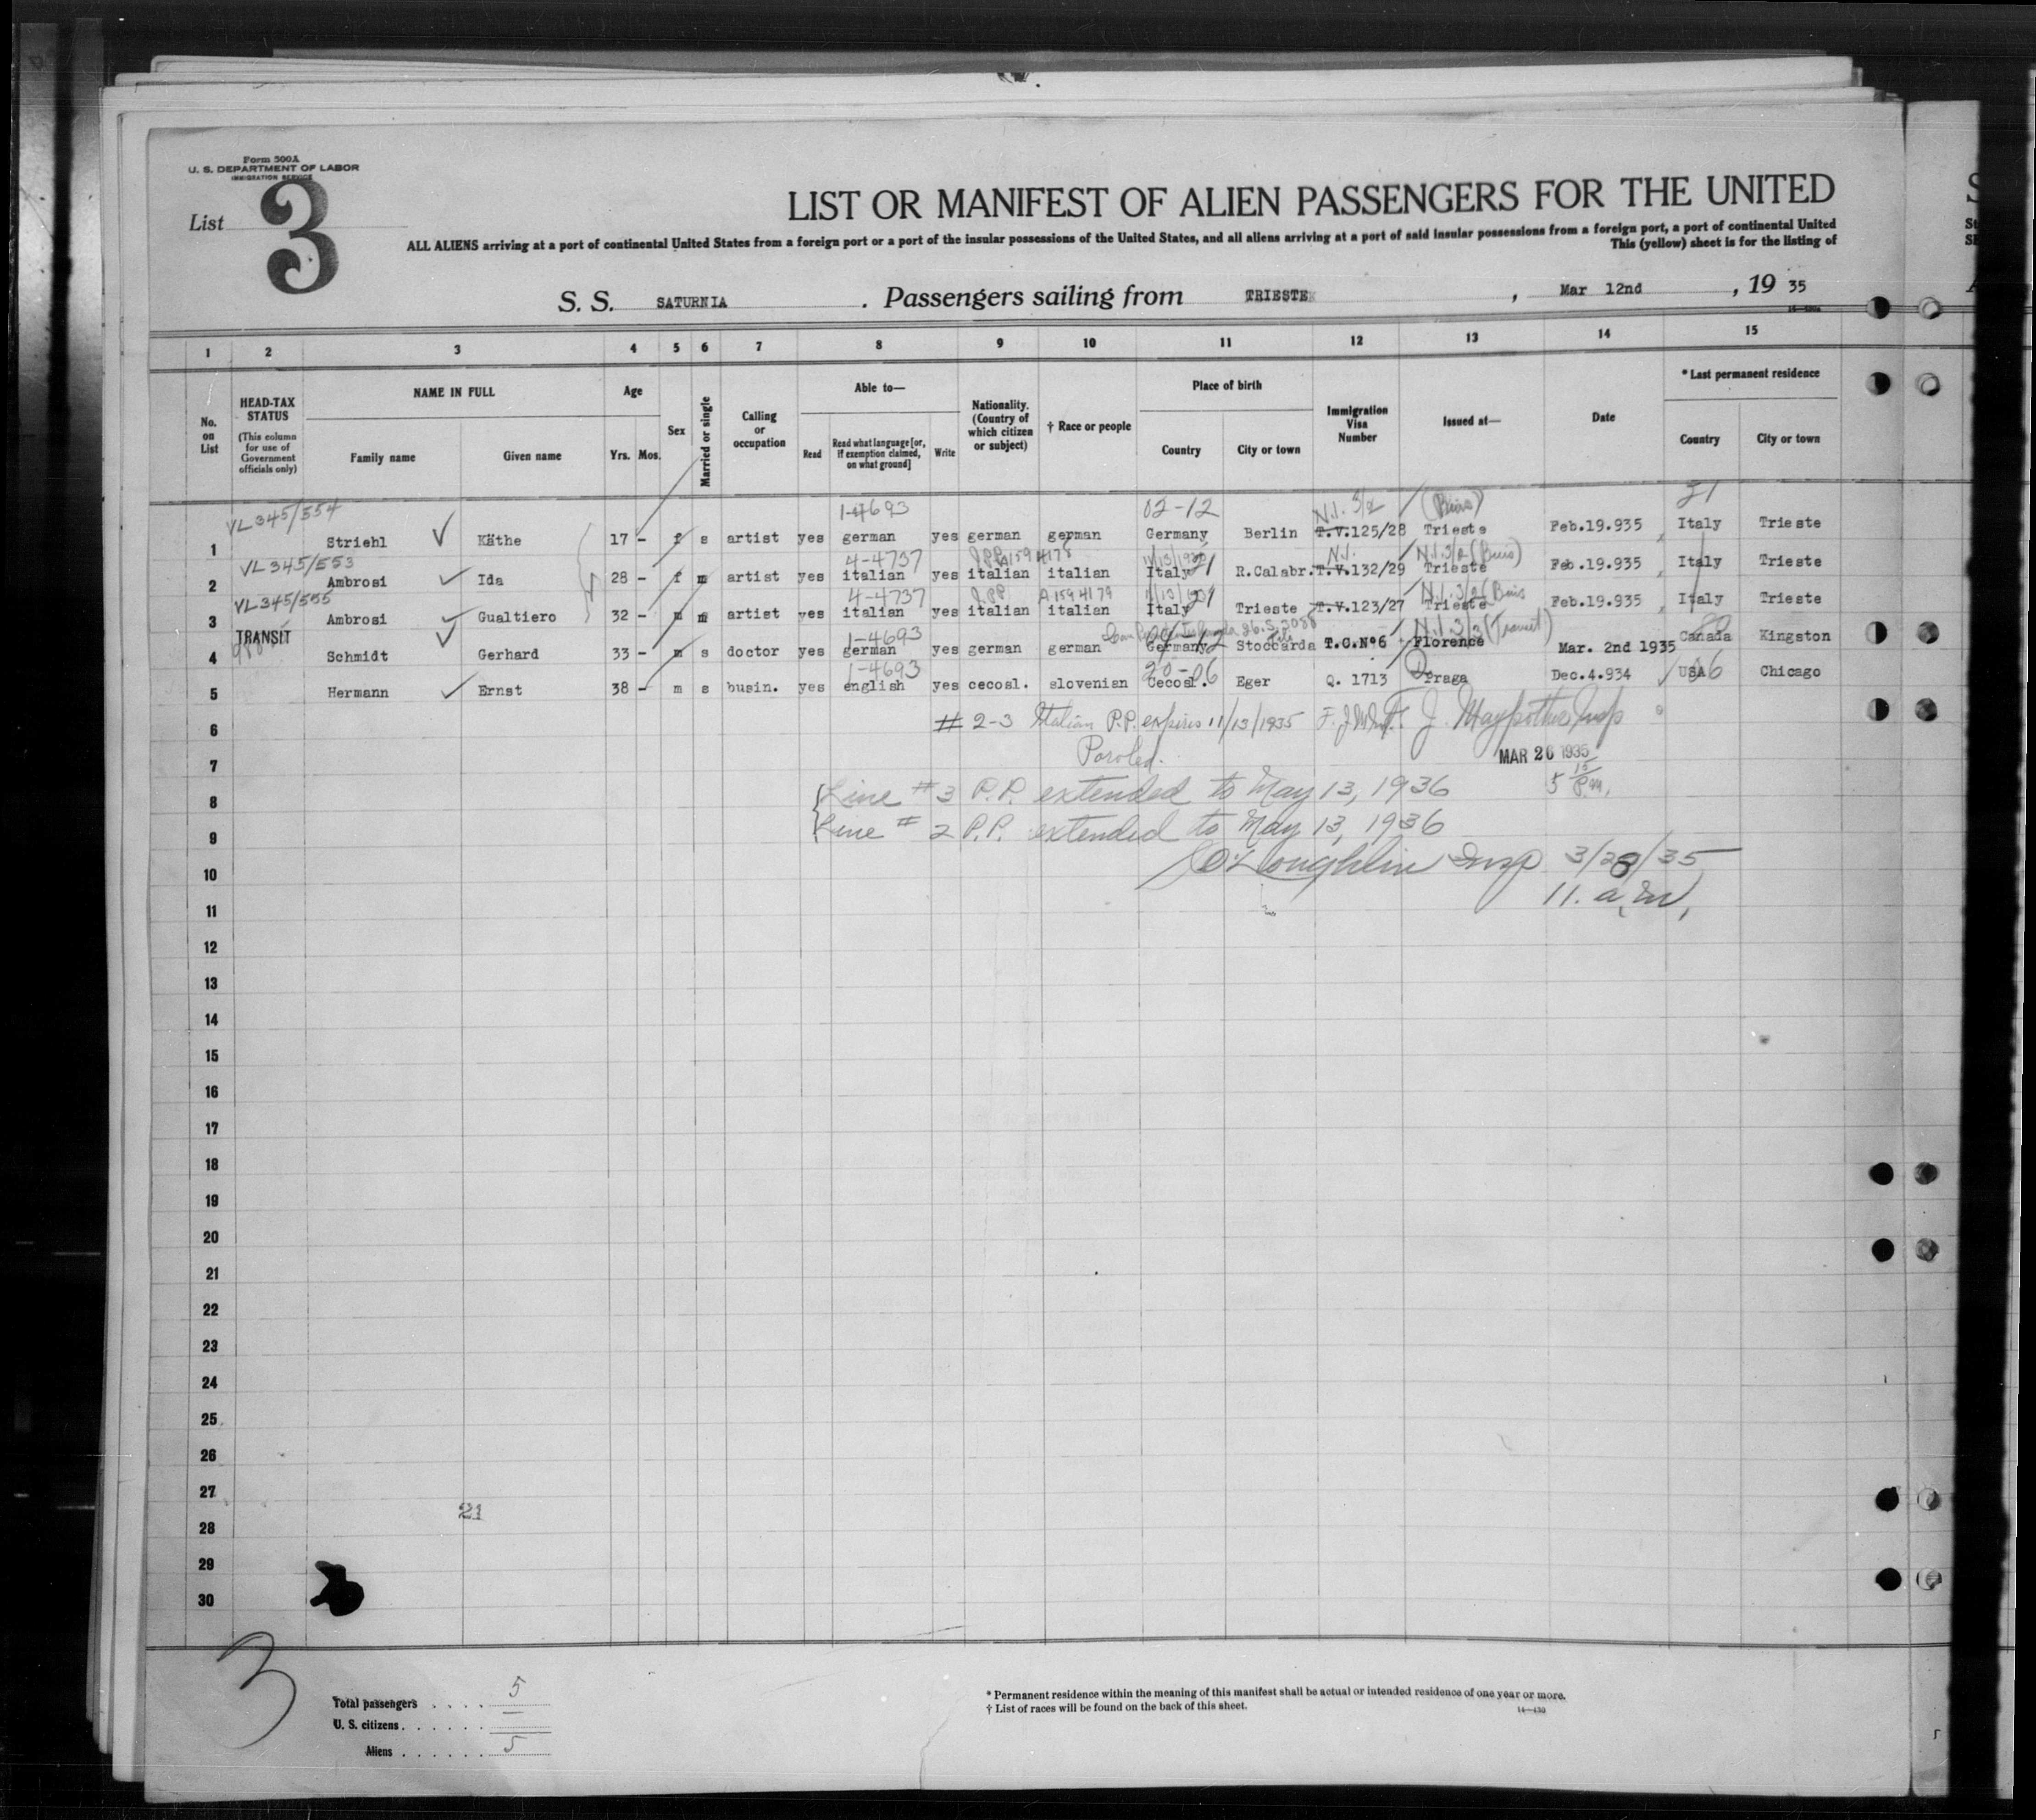 Form 500A
U. S. DEPARTMENT OF LABOR
IMMIGRATION SERVICE
List 3
LIST OR MANIFEST OF ALIEN PASSENGERS FOR THE UNITED
ALL ALIENS arriving at a port of continental United States from a foreign port or a port of the insular possessions of the United States, and all aliens arriving at a port of said insular possessions from a foreign port, a port of continental United
This (yellow) sheet is for the listing of
S. S. SATURNIA . Passengers sailing from TRIESTE , Mar 12nd , 19 35
1 2 3 4 5 6 7 8 9 10 11 12 13 14 15
No. on List
HEAD-TAX STATUS (This column for use of Government officials only)
NAME IN FULL Family name Given name
Age Yrs. Mos.
Sex
Married or single
Calling or occupation
Able to— Read Read what language [or, if exemption claimed, on what ground] Write
Nationality. (Country of which citizen or subject)
† Race or people
Place of birth Country City or town
Immigration Visa Number
Issued at—
Date
* Last permanent residence Country City or town
VL345/554 1-4693 02-12 N.I. 3/2 (Buis) 21
1 Striehl Käthe 17 - f s artist yes german yes german german Germany Berlin T.V.125/28 Trieste Feb.19.935 Italy Trieste
VL345/553 4-4737 A1594178 11/13/1935 N.I. N.I.3/2 (Buis)
2 Ambrosi Ida 28 - f m artist yes italian yes italian italian Italy 21 R.Calabr. T.V.132/29 Trieste Feb.19.935 Italy Trieste
VL345/555 4-4737 A1594179 11/13/1935 N.I.3/2 (Buis
3 Ambrosi Gualtiero 32 - m m artist yes italian yes italian italian Italy 21 Trieste T.V.123/27 Trieste Feb.19.935 Italy Trieste
TRANSIT 1-4693 N.I.3/3 (Transit)
4 Schmidt Gerhard 33 - m s doctor yes german yes german german Germany Stoccarda T.C.Nº6 Florence Mar. 2nd 1935 Canada Kingston
1-4693 20-06
5 Hermann Ernst 38 - m s busin. yes english yes cecosl. slovenian Cecosl. Eger Q. 1713 Praga Dec.4.934 USA Chicago
6 # 2-3 Italian P.P. expires 11/13/1935 F. J. Maypother Insp
7 Paroled. MAR 26 1935
5 15 P.M.
8 Line # 3 P.P. extended to May 13, 1936
9 Line # 2 P.P. extended to May 13, 1936
10 O'Loughlin Insp 3/28/35
11 11. a.m,
12
13
14
15
16
17
18
19
20
21
22
23
24
25
26
27
21
28
29
30
3
Total passengers . . . . 5
U. S. citizens . . . . . .
Aliens . . . . . . 5
* Permanent residence within the meaning of this manifest shall be actual or intended residence of one year or more.
† List of races will be found on the back of this sheet.
14—430